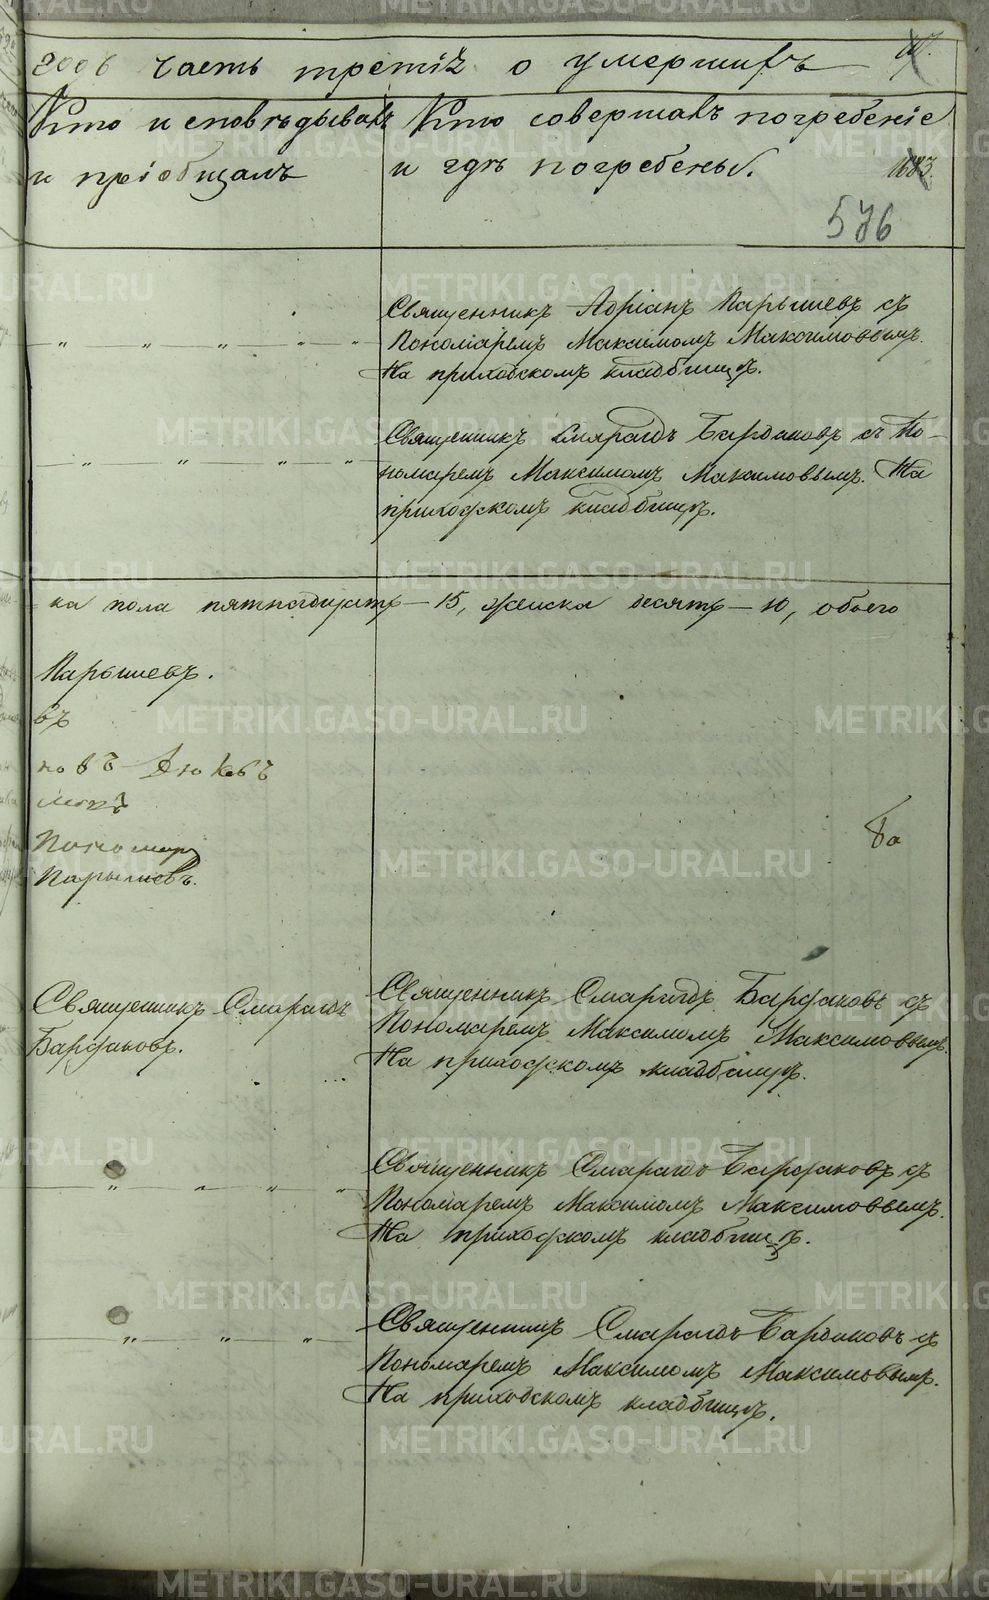 года часть третія о умершихъ
Кто исповѣдывалъ
и пріобщалъ
Кто совершалъ погребеніе
и гдѣ погребены.
576
Священникъ Адріанъ Парышевъ съ
Пономаремъ Максимомъ Максимовымъ.
На приходскомъ кладбищѣ.
Священникъ Смарагдъ Бардаковъ съ По-
номаремъ Максимомъ Максимовымъ. На
приходскомъ кладбищѣ.
ка пола пятнадцать – 15, женска десять – 10, обоего
Парышевъ.
въ
новъ Дюковъ
Пономарь
Парышевъ.
Священникъ Смарагдъ
Бардаковъ.
Священникъ Смарагдъ Бардаковъ съ
Пономаремъ Максимомъ Максимовымъ.
На приходскомъ кладбищѣ.
Священникъ Смарагдъ Бардаковъ съ
Пономаремъ Максимомъ Максимовымъ.
На приходскомъ кладбищѣ.
Священникъ Смарагдъ Бардаковъ съ
Пономаремъ Максимомъ Максимовымъ.
На приходскомъ кладбищѣ.
METRIKI.GASO-URAL.RU